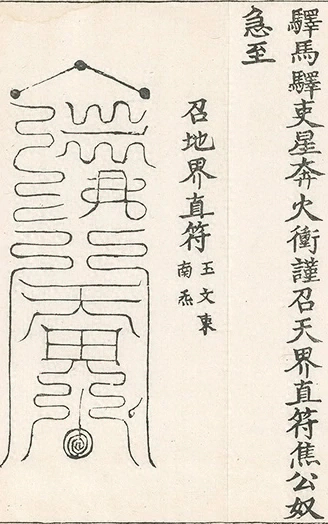 驛馬驛吏星奔火衝謹召天界直符焦公奴
急至
召地界直符
王文東
南炁